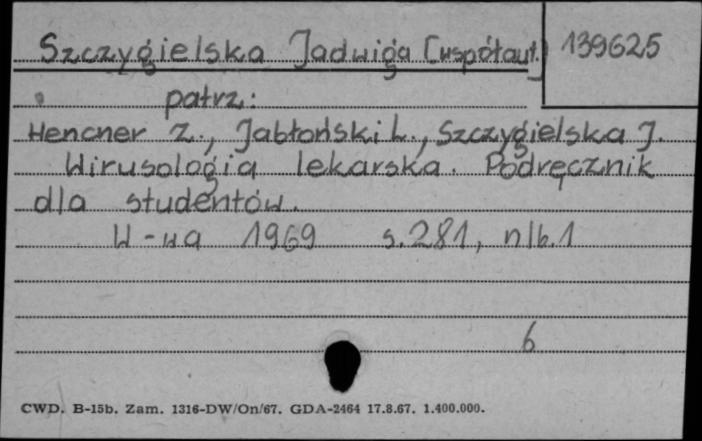 Szczygielska Jadwiga [współaut.]
139625
patrz:
Hencner Z., Jabłoński L., Szczygielska J.
Wirusologia lekarska. Podręcznik
dla studentów.
W-wa 1969 s.281, nlb.1
6
CWD. B-15b. Zam. 1316-DW/On/67. GDA-2464 17.8.67. 1.400.000.